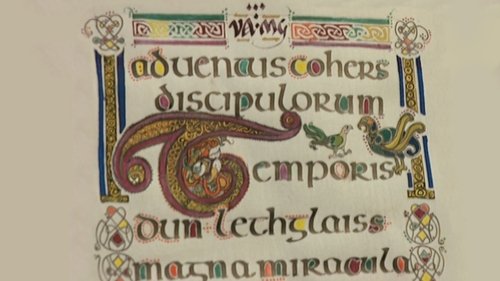 VA·MG
aduentuscohers
discipulorum
Temporis
dun·lethglaiss
magnamiracula